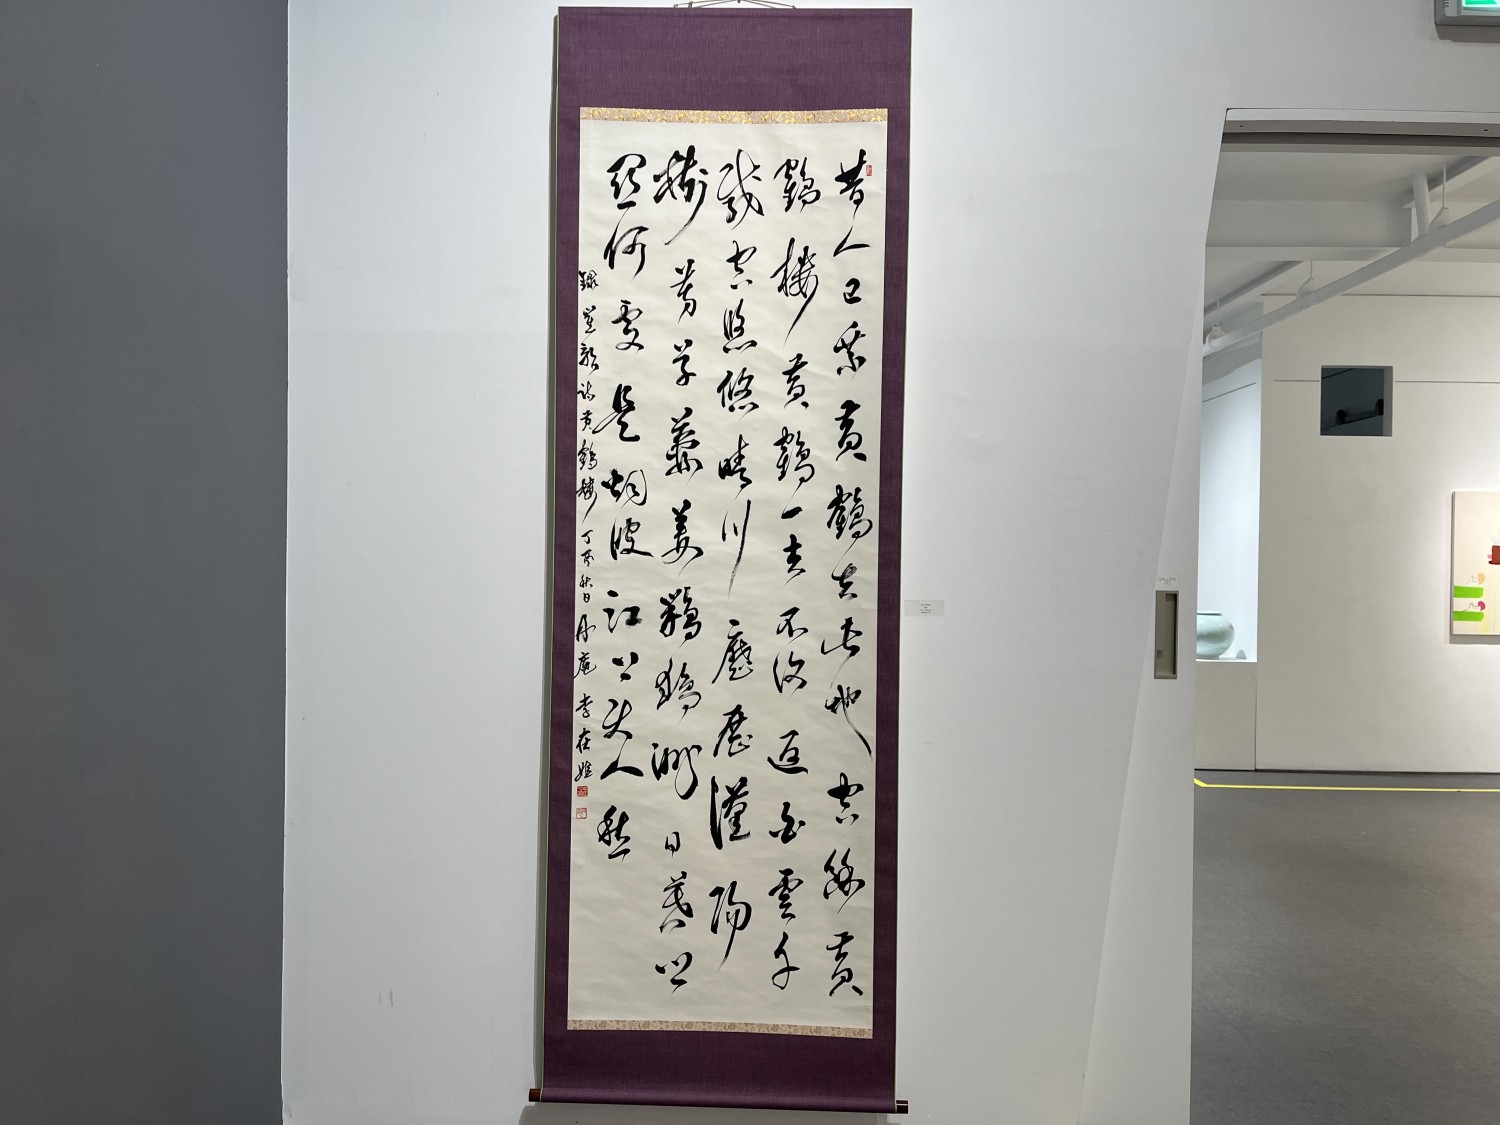 昔人已乘黃鶴去此地空餘黃
鶴樓黃鶴一去不復返白雲千
載空悠悠晴川歷歷漢陽
樹芳草萋萋鸚鵡洲日暮鄉
關何處是烟波江上使人愁
錄崔顥詩黃鶴樓 丁酉秋日 丹庵 李在姬